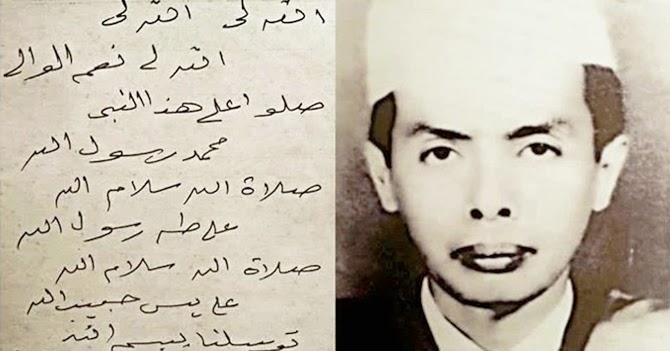 الله لي الله لي
الله لي نعم الوالي
صلوا على هذا النبي
محمد رسول الله
صلاة الله سلام الله
على طه رسول الله
صلاة الله سلام الله
على يس حبيب الله
توسلنا ببسم الله